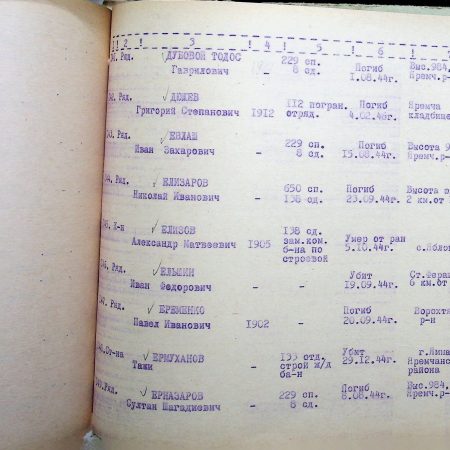 1! 2 ! 3 ! 4 ! 5 ! 6 !
Ряд. ДУБОВОЙ ТОДОС 229 сп. Погиб Выс.984,
Гаврилович - 8 сд. 1.08.44г. Кремч.р-
Ряд. ДЮЖЕВ 112 погран. Погиб Кремча
Григорий Степанович 1912 отряд. 4.02.46г. кладбище
Ряд. ЕВЛАШ 229 сп. Погиб Высота 9
Иван Захарович - 8 сд. 15.08.44г. Кремч.р-
Ряд. ЕЛИЗАРОВ 650 сп. Погиб Высота
Николай Иванович - 138 сд. 23.09.44г. 2 км.от
К-н ЕЛИЗОВ 138 сд. Умер от ран
Александр Матвеевич 1905 зам.ком. 5.10.44г. с.Яблон
б-на по
строевой
Ряд. ЕЛЬШИН Убит Ст.Фера
Иван Федорович - - 19.09.44г. 6 км.от
Ряд. ЕРЕМЕНКО Погиб Ворохтя
Павел Иванович 1902 - 20.09.44г. р-н
Ст-на ЕРМУХАНОВ 133 отд. Убит г.Ямна
Тажи - строй ж/д 29.12.44г. Яремчанс
ба-н района
Ряд. ЕРНАЗАРОВ 229 сп. Погиб Выс.984,
Султан Шагадиевич - 8 сд. 8.08.44г. Кремч.р-